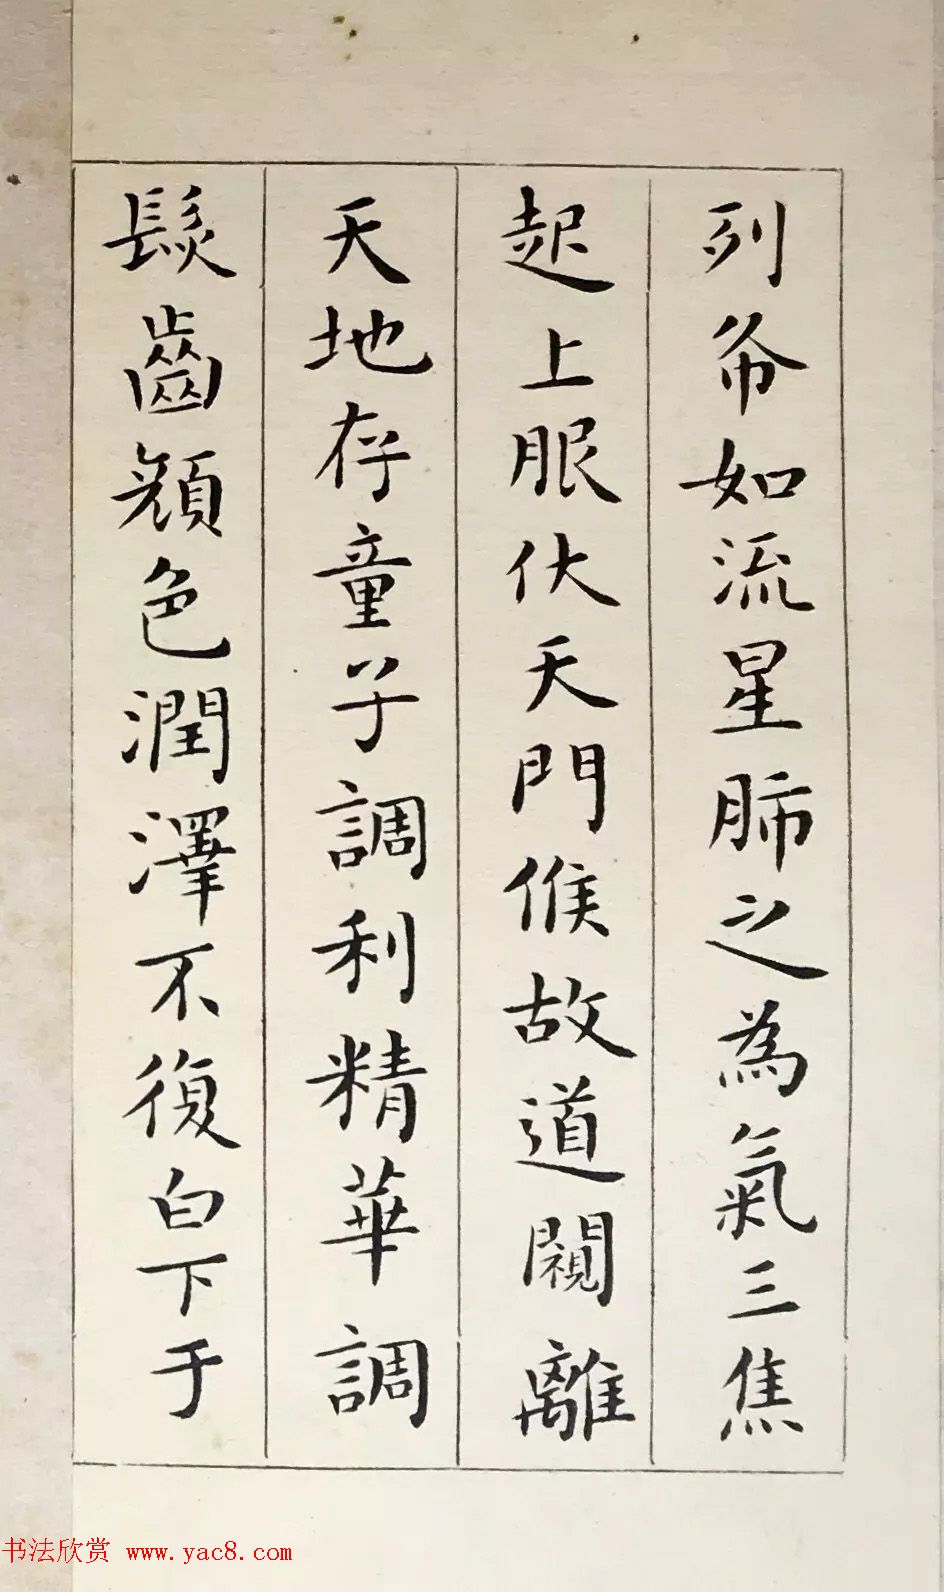 列布如流星肺之為氣三焦
起上服伏天門候故道闚離
天地存童子調利精華調
髮齒顏色潤澤不復白下于
书法欣赏 www.yac8.com